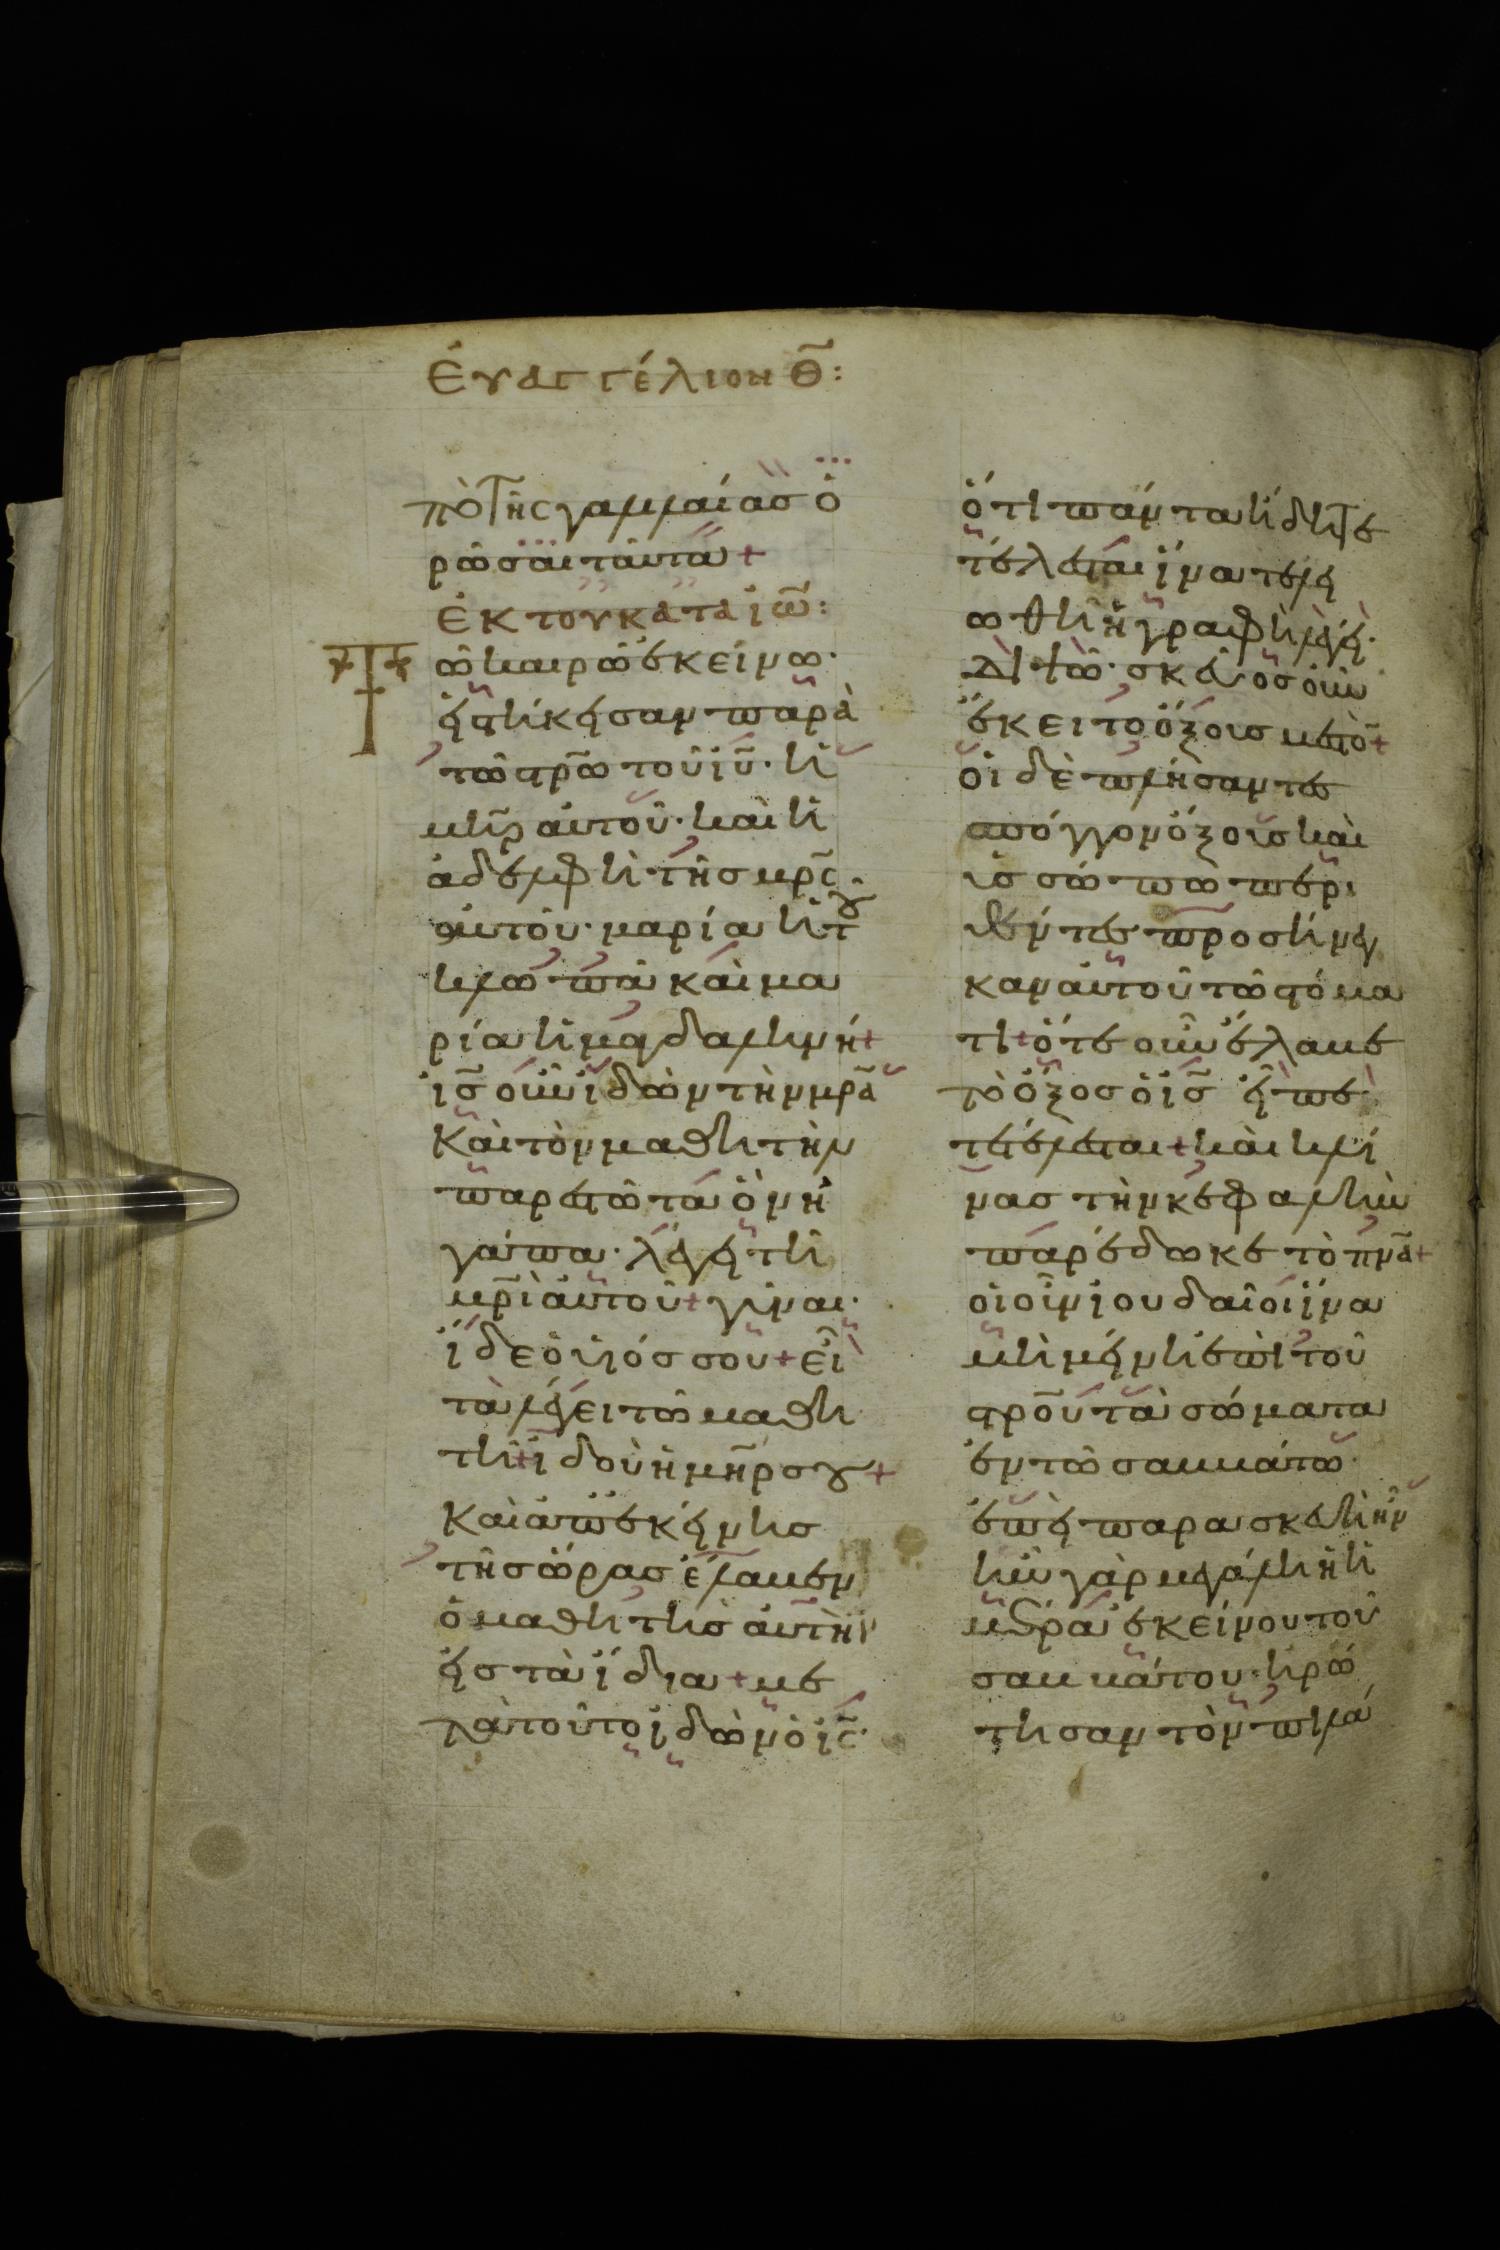 Ἐυαγγέλιον Θ̅:
πὸ τῆς γαλιλαίασ ὁ
ρῶσαι ταῦτα +
ἐκ τοῦ κατὰ ἰω̅:
Τῶ καιρῶ ἐκείνω·
εἱστήκεισαν παρὰ
τῶ στρ̅ω τοῦ ἰυ̅· ἡ
μη̅ρ αὐτοῦ· καὶ ἡ
ἀδελφὴ τῆσ μρ̅ς
αὐτοῦ· μαρία ἡ τοῦ
κλωπᾶ καὶ μα
ρία ἡ μαγδαληνή +
ἰσ̅ οὖν ἰδὼν τὴν μρ̅α
καὶ τὸν μαθητὴν
παρεστῶτα ὃν ἠ
γάπα· λέγει τῆ
μρ̅ὶ αὐτοῦ + γύναι·
ἴδε ὁ υἱόσ σου + εἶ
τα λέγει τῶ μαθη
τῆ + ἰδοὺ ἡ μη̅ρ σου +
καὶ ἀπ' ἐκείνησ
τῆσ ὥρασ ἔλαβεν
ὁ μαθητὴσ αὐτὴν
εἰσ τὰ ἴδια + με
τὰ τοῦτο ἰδὼν ὁ ἰς̅·
ὅτι πάντα ἤδη τε
τέλεσται ἵνα τελει
ωθῆ ἡ γραφὴ λέγει·
Διψῶ· σκεῦοσ οὖν
ἔκειτο ὄξουσ μεστὸ̅ +
οἱ δὲ πλήσαντεσ
σπόγγον ὄξουσ καὶ
ὑσσώπω περι
θέντεσ προσήνεγ
καν αὐτοῦ τῶ στόμα
τι + ὅτε οὖν ἔλαβε
τὸ ὄξοσ ὁ ἰσ̅ εἶπε·
τετέλεσται + καὶ κλί
νασ τὴν κεφαλὴν
παρέδωκε τὸ πνα̅ +
οἱ οὖν ἰουδαῖοι ἵνα
μὴ μείνη ἐπὶ τοῦ
στρο̅ῦ τὰ σώματα
ἐν τῶ σαββάτω·
ἐπεὶ παρασκευὴ ἦν
ἦν γὰρ μεγάλη ἡ ἡ
μέρα ἐκείνου τοῦ
σαββάτου· ἠρώ
τησαν τὸν πιλά